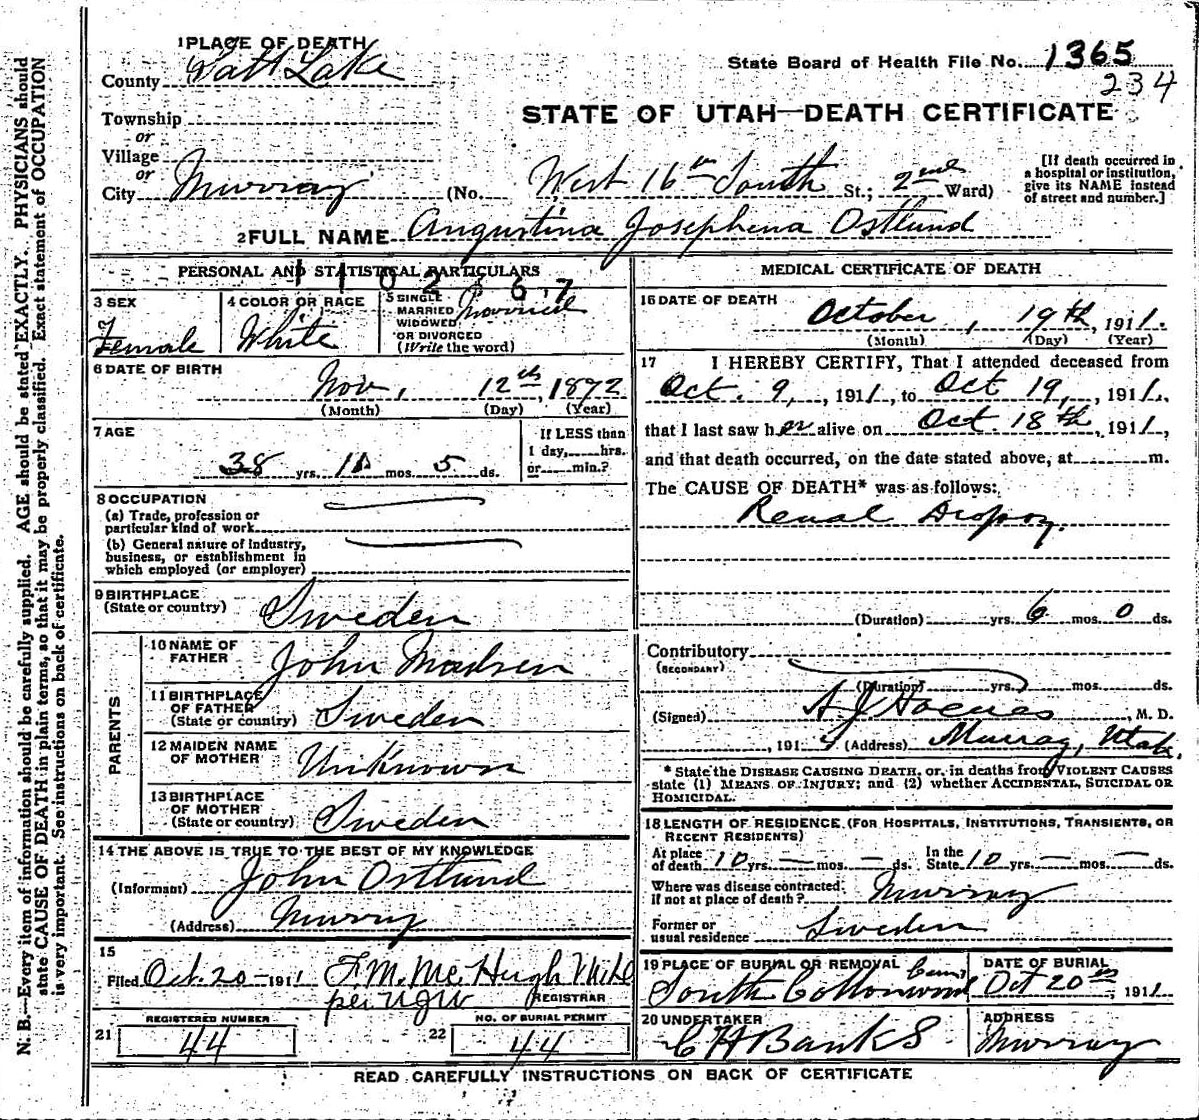 1 PLACE OF DEATH
County Salt Lake
State Board of Health File No. 1365
234
Township
or
Village
or
STATE OF UTAH—DEATH CERTIFICATE
City Murray (No. West 16th South St.; 2nd Ward)
[If death occurred in a hospital or institution, give its NAME instead of street and number.]
2 FULL NAME Augustina Josephena Ostlund
PERSONAL AND STATISTICAL PARTICULARS
1102367
3 SEX
Female
4 COLOR OR RACE
White
5 SINGLE
MARRIED
WIDOWED
OR DIVORCED
(Write the word)
Married
6 DATE OF BIRTH
Nov, 12th, 1872
(Month) (Day) (Year)
7 AGE
38 yrs. mos. 5 ds.
If LESS than
1 day, hrs.
or min.?
8 OCCUPATION
(a) Trade, profession or
particular kind of work
(b) General nature of industry,
business, or establishment in
which employed (or employer)
9 BIRTHPLACE
(State or country)
Sweden
PARENTS
10 NAME OF
FATHER
John Madsen
11 BIRTHPLACE
OF FATHER
(State or country)
Sweden
12 MAIDEN NAME
OF MOTHER
Unknown
13 BIRTHPLACE
OF MOTHER
(State or country)
Sweden
14 THE ABOVE IS TRUE TO THE BEST OF MY KNOWLEDGE
(Informant) John Ostlund
(Address) Murry
15
Filed Oct. 20 - 1911 F. M. McHugh
per
REGISTRAR
REGISTERED NUMBER
21 44
NO. OF BURIAL PERMIT
22 44
MEDICAL CERTIFICATE OF DEATH
16 DATE OF DEATH
October, 19th, 1911.
(Month) (Day) (Year)
17 I HEREBY CERTIFY, That I attended deceased from
Oct. 9, 1911, to Oct 19, 1911,
that I last saw her alive on Oct. 18th, 1911,
and that death occurred, on the date stated above, at m.
The CAUSE OF DEATH* was as follows:
Renal Dropsy.
(Duration) yrs. 6 mos. 0 ds.
Contributory
(SECONDARY)
(Duration) yrs. mos. ds.
(Signed) A J , M. D.
, 191 (Address) Murray, Utah.
* State the DISEASE CAUSING DEATH, or, in deaths from VIOLENT CAUSES
state (1) MEANS OF INJURY; and (2) whether ACCIDENTAL, SUICIDAL OR
HOMICIDAL.
18 LENGTH OF RESIDENCE (FOR HOSPITALS, INSTITUTIONS, TRANSIENTS, OR
RECENT RESIDENTS)
At place
of death 10 yrs. — mos. — ds. In the
State 10 yrs. — mos. — ds.
Where was disease contracted
if not at place of death? Murray
Former or
usual residence Sweden
19 PLACE OF BURIAL OR REMOVAL
South Cottonwood Cem
DATE OF BURIAL
Oct 20th, 1911
20 UNDERTAKER
C H Banks
ADDRESS
Murray
READ CAREFULLY INSTRUCTIONS ON BACK OF CERTIFICATE
N. B.—Every item of information should be carefully supplied. AGE should be stated EXACTLY. PHYSICIANS should
state CAUSE OF DEATH in plain terms, so that it may be properly classified. Exact statement of OCCUPATION
is very important. See instructions on back of certificate.